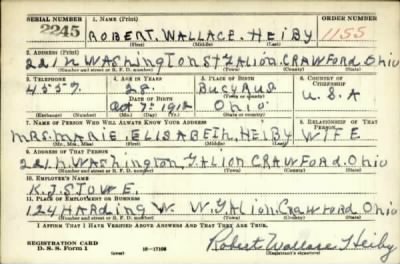 SERIAL NUMBER 1. NAME (Print) ORDER NUMBER
2245 ROBERT. WALLACE. HEIBY 1155
(First) (Middle) (Last)
2. ADDRESS (Print)
221 N WASHINGTON ST GALION, CRAWFORD, Ohio
(Number and street or R. F. D. number) (Town) (County) (State)
3. TELEPHONE 4. AGE IN YEARS 5. PLACE OF BIRTH 6. COUNTRY OF CITIZENSHIP
4557. 28. BUCYRUS
DATE OF BIRTH (Town or county)
Oct 7. 1912 Ohio U.S.A
(Exchange) (Number) (Mo.) (Day) (Yr.) (State or country)
7. NAME OF PERSON WHO WILL ALWAYS KNOW YOUR ADDRESS 8. RELATIONSHIP OF THAT PERSON
MRS. MARIE. ELISABETH, HEIBY WIFE
(Mr., Mrs., Miss) (First) (Middle) (Last)
9. ADDRESS OF THAT PERSON
221 N. WASHINGTON, GALION CRAWFORD. Ohio
(Number and street or R. F. D. number) (Town) (County) (State)
10. EMPLOYER'S NAME
K. J. STOWE.
11. PLACE OF EMPLOYMENT OR BUSINESS
124 HARDING W. W. GALION, Crawford Ohio
(Number and street or R. F. D. number) (Town) (County) (State)
I AFFIRM THAT I HAVE VERIFIED ABOVE ANSWERS AND THAT THEY ARE TRUE.
REGISTRATION CARD
D. S. S. Form 1 16—17105 Robert Wallace Heiby
(Registrant's signature)